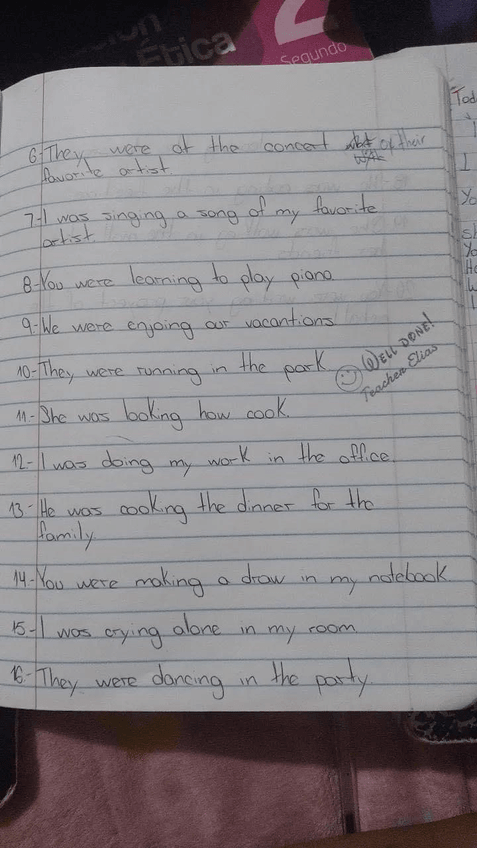 Ética
2
Segundo
6-They were at the concert of their
favorite artist
7-I was singing a song of my favorite
artist
8-You were learning to play piano.
9-We were enjoing our vacantions
10-They were running in the park
WELL DONE!
Teacher Elias
11-She was looking how cook.
12-I was doing my work in the office
13-He was cooking the dinner for the
family
14-You were making a draw in my notebook
15-I was crying alone in my room
16-They were dancing in the party